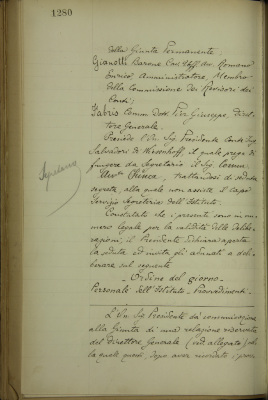 1280
della Giunta Permanente
Gianotti Barone Cav. Uff. Avv. Romano
Enrico Amministratore, Membro
della Commissione dei Revisori dei
Conti;
Fabris Comm. Dott. Pier Giuseppe, Diret-
tore Generale.
Presiede l'Ill. Sig. Presidente Conte Ing.
Salvadori di Wiesenhoff, il quale prega di
fungere da Segretario il Sig. Comm.
Avv. Chiuca, trattandosi di seduta
segreta, alla quale non assiste il Capo
Servizio Segreteria dell'Istituto.
Constatato che i presenti sono in nu-
mero legale per la validità delle delibe-
razioni, il Presidente dichiara aperta
la seduta ed invita gli adunati a deli-
berare sul seguente
Ordine del giorno
Personale dell'Istituto - Provvedimenti.
L'Ill. Sig. Presidente dà comunicazione
alla Giunta di una relazione riservata
del Direttore Generale (ved. allegato)
la quale, dopo aver ricordato i